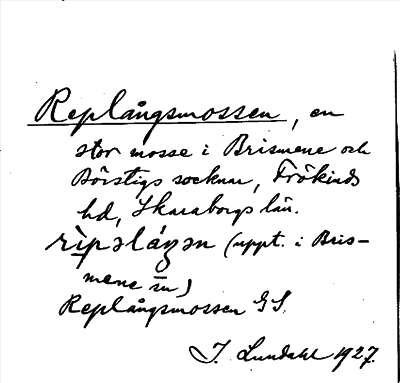 Replångsmossen, en
stor mosse i Brismene och
Börstigs socknar, Frökinds
hd, Skaraborgs län.
rìpəláŋən (uppt. i Bris-
mene sn)
Replångsmossen GS.
I. Lundahl 1927.